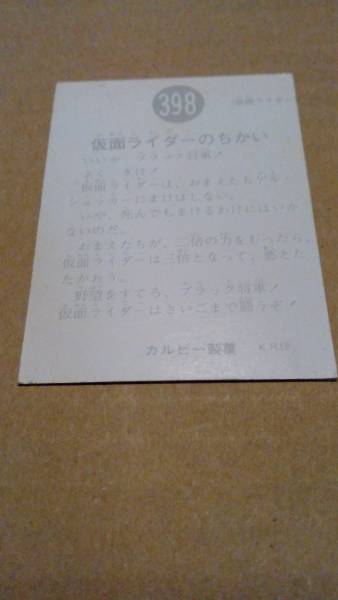 398
仮面ライダー
仮面ライダーのちかい
いいか ブラック将軍!
よく きけ!
仮面ライダーは、おまえたちゲル
ショッカーにまけはしない。
いや、死んでもまけるわけにはいか
ないのだ。
おまえたちが、二倍の力をもったら、
仮面ライダーは三倍となって、悪とた
たかおう。
野望をすてろ、ブラック将軍!
仮面ライダーはさいごまで闘うぞ!
カルビー製菓 KR16